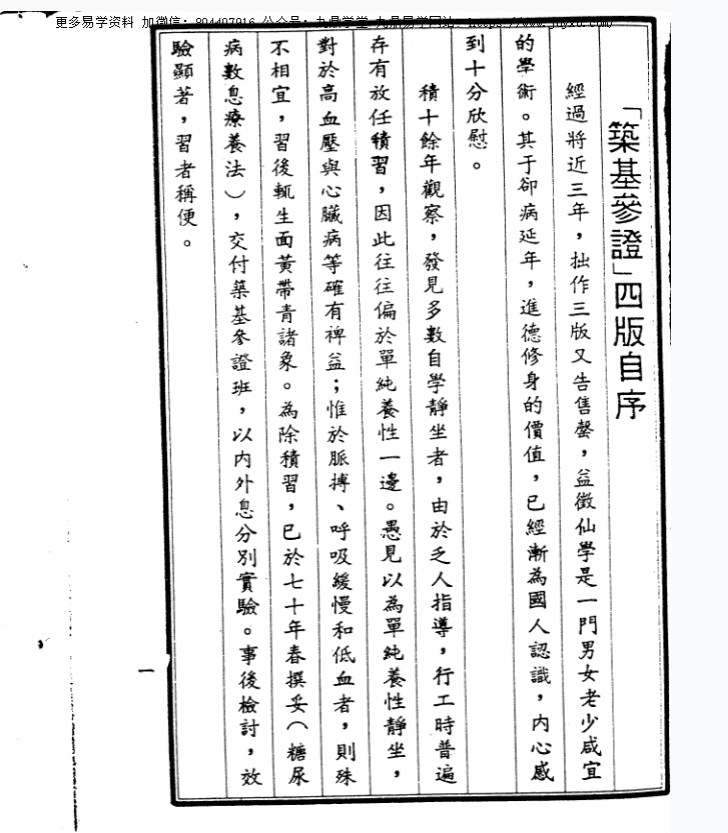 更多易学资料 加微信：804407916 公众号：九鼎学堂 九鼎易学网站：https://www.jdyxw.com/
「築基參證」四版自序
經過將近三年，拙作三版又告售罄，益徵仙學是一門男女老少咸宜
的學術。其于卻病延年，進德修身的價值，已經漸為國人認識，內心感
到十分欣慰。
積十餘年觀察，發見多數自學靜坐者，由於乏人指導，行工時普遍
存有放任積習，因此往往偏於單純養性一邊。愚見以為單純養性靜坐，
對於高血壓與心臟病等確有裨益；惟於脈搏、呼吸緩慢和低血者，則殊
不相宜，習後輒生面黃帶青諸象。為除積習，已於七十年春撰妥（糖尿
病數息療養法），交付築基參證班，以內外息分別實驗。事後檢討，效
驗顯著，習者稱便。
一